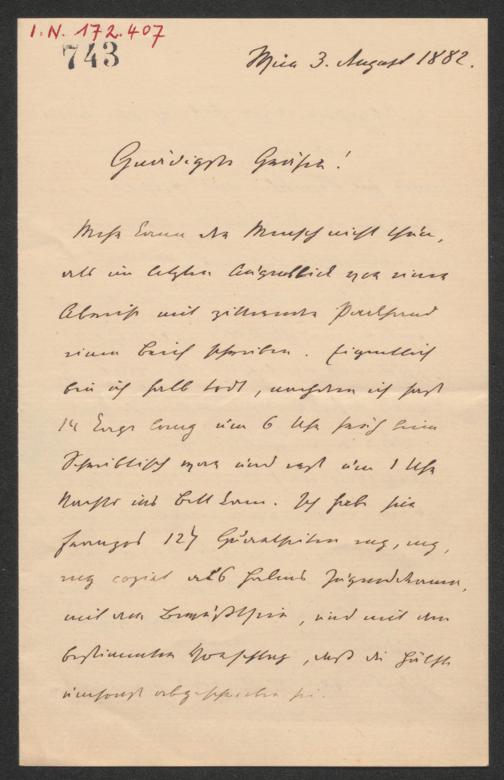 I.N. 172.407
743
Wien 3. August 1882.
Gnädigste Gräfin!
Mehr kann der Mensch nicht thun,
als im letzten Augenblick vor einer
Abreise mit zitternder Hand
einen Brief schreiben. Eigentlich
bin ich halb todt, nachdem ich fast
14 Tage lang um 6 Uhr früh beim
Schreibtisch war und erst um 1 Uhr
Nachts ins Bett kam. Ich habe für
127 Quartseiten eng, eng,
eng copirt aus
mit dem Bewußtsein, und mit dem
bestimmten Vorschlag, daß die Hälfte
umsonst abgeschrieben sei.